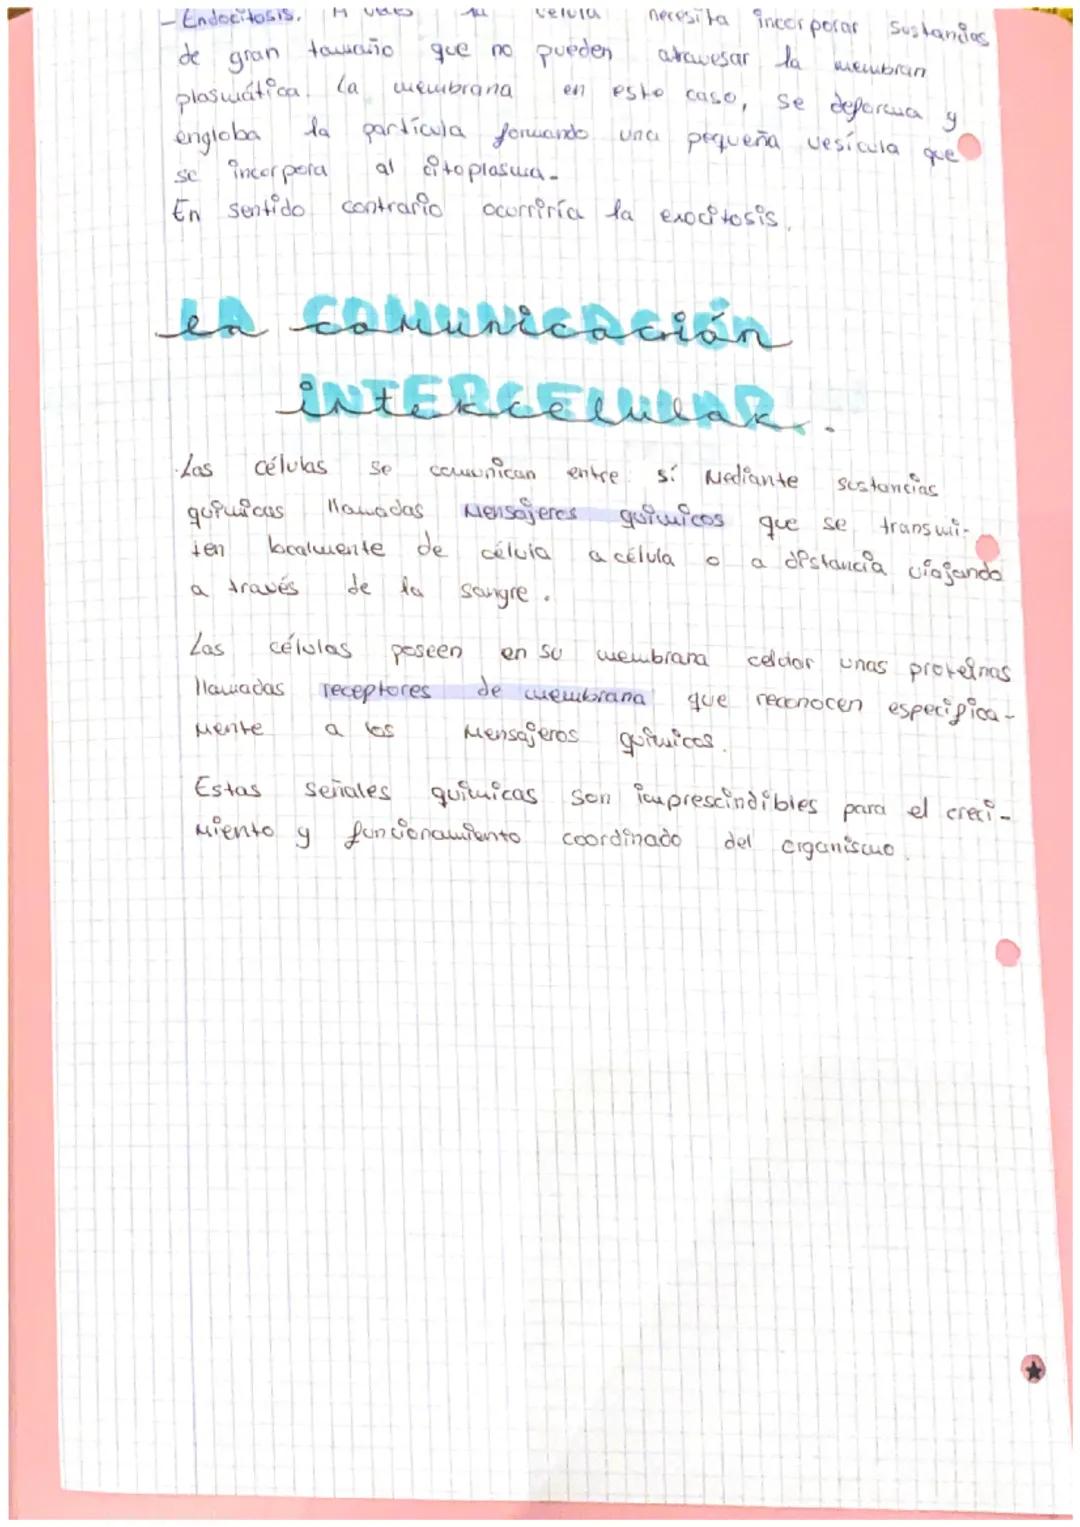 - Endocitosis. A veces la célula necesita incorporar sustancias
de gran tamaño que no pueden atravesar la membran
plasmática. La membrana en este caso, se deforma y
engloba la partícula formando una pequeña vesícula que
se incorpora al citoplasma.
En sentido contrario ocurriría la exocitosis.
LA COMUNICACIÓN
INTERCELULAR.
Las células se comunican entre sí mediante sustancias
químicas llamadas mensajeros químicos que se transmi-
ten localmente de célula a célula o a distancia viajando
a través de la sangre.
Las células poseen en su membrana celular unas proteínas
llamadas receptores de membrana que reconocen especifica-
mente a los mensajeros químicos.
Estas señales químicas son imprescindibles para el creci-
miento y funcionamiento coordinado del organismo.